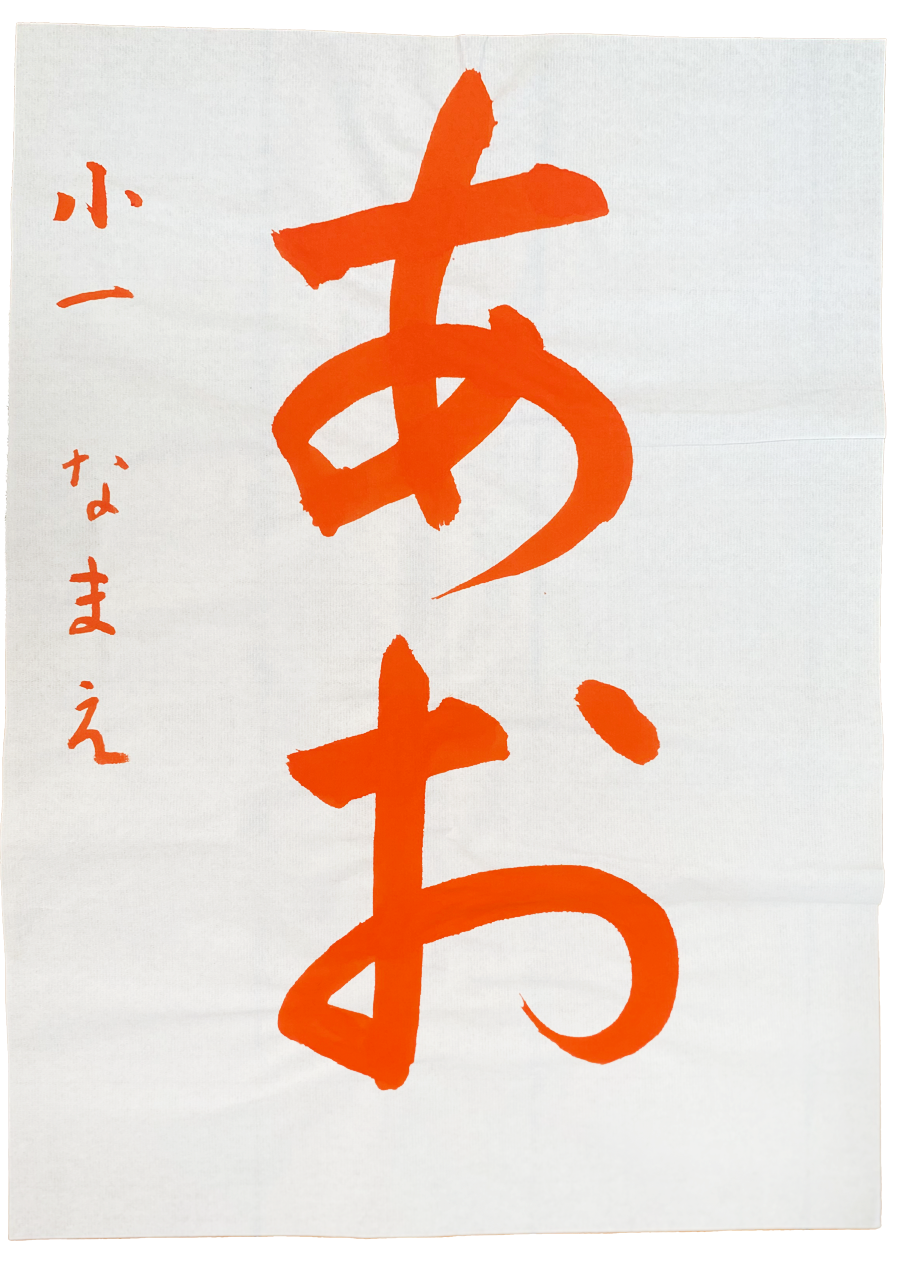 あお
小一 なまえ